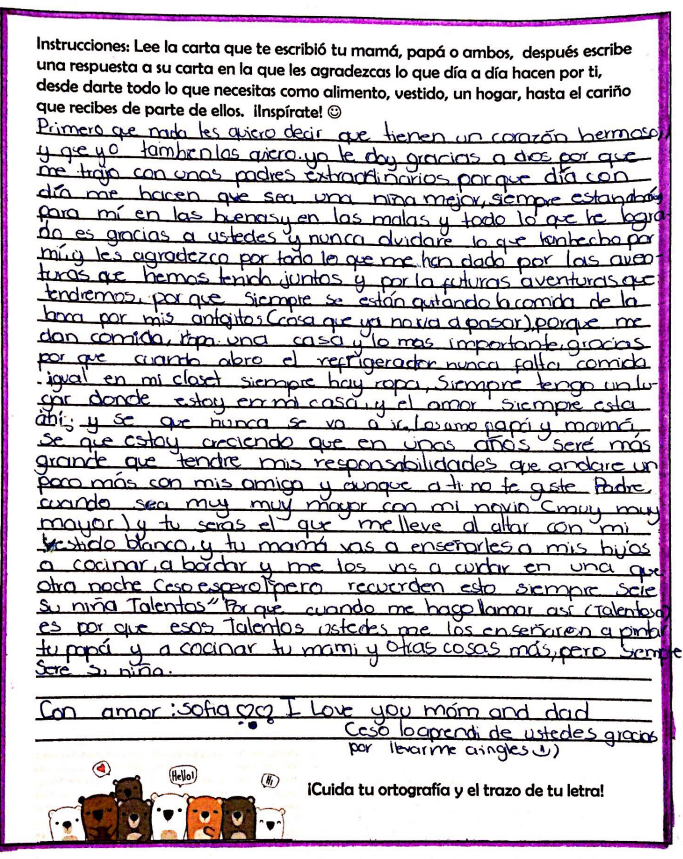 Instrucciones: Lee la carta que te escribió tu mamá, papá o ambos, después escribe
una respuesta a su carta en la que les agradezcas lo que día a día hacen por ti,
desde darte todo lo que necesitas como alimento, vestido, un hogar, hasta el cariño
que recibes de parte de ellos. ¡Inspírate! ☺
Primero que nada les quiero decir que tienen un corazón hermoso,
y que yo tambien los quiero. yo le doy gracias a dios por que
me trajo con unos padres extraordinarios porque día con
día me hacen que sea una niña mejor, siempre estan ahí
para mí en las buenas y en las malas y todo lo que he logra-
do es gracias a ustedes y nunca olvidare lo que han hecho por
mí, y les agradezco por todo lo que me han dado por las aven-
turas que hemos tenido juntos y por la futuras aventuras que
tendremos, por que siempre se están quitando la comida de la
boca por mis antojitos (cosa que ya no va a pasar), porque me
dan comida, ropa. una casa y lo mas importante, gracias
por que cuando abro el refrigerador nunca falta comida
. igual en mi closet siempre hay ropa, Siempre tengo un lu-
gar donde estoy en mi casa, y el amor siempre esta
ahí; y se que nunca se va a ir, los amo papá y mamá,
se que estoy creciendo que en unos años seré más
grande que tendre mis responsabilidades que andare un
poco más con mis amiga y aunque a ti no te guste Padre
cuando sea muy muy mayor con mi novio (muy muy
mayor) y tu serás el que me lleve al altar con mi
vestido blanco, y tu mamá vas a enseñarles a mis hijos
a cocinar, a bordar y me los vas a cuidar en una que
otra noche (eso espero) pero recuerden esto siempre Seré
su niña Talentos" Por que cuando me hago llamar así (Talentosa)
es por que esos Talentos ustedes me los enseñaron a pintar
tu papá y a cocinar tu mami y otras cosas más, pero siempre
Seré Su niña.
Con amor: Sofia ♡♡ I Love you mom and dad
(eso lo aprendi de ustedes gracias
por llevarme a ingles :))
Hello!
Hi
¡Cuida tu ortografía y el trazo de tu letra!